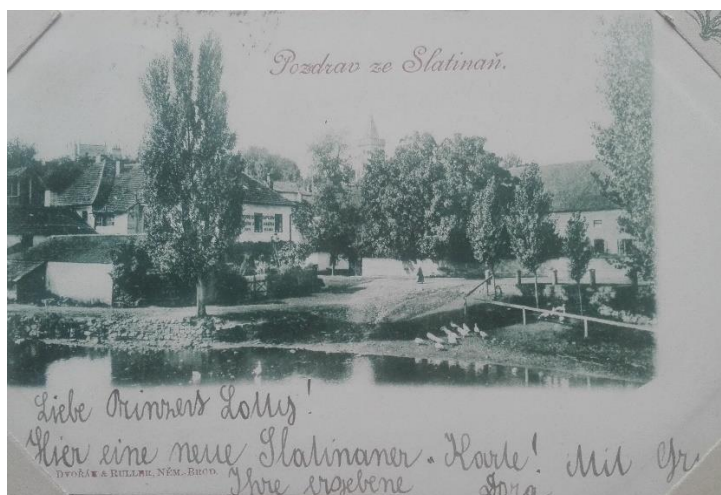 Pozdrav ze Slatinaň.
Liebe Prinzess Lotty!
Hier eine neue Slatinaner-Karte! Mit Gr
DVOŘÁK A RULLER, NĚM. BROD.
Ihre ergebene Dora